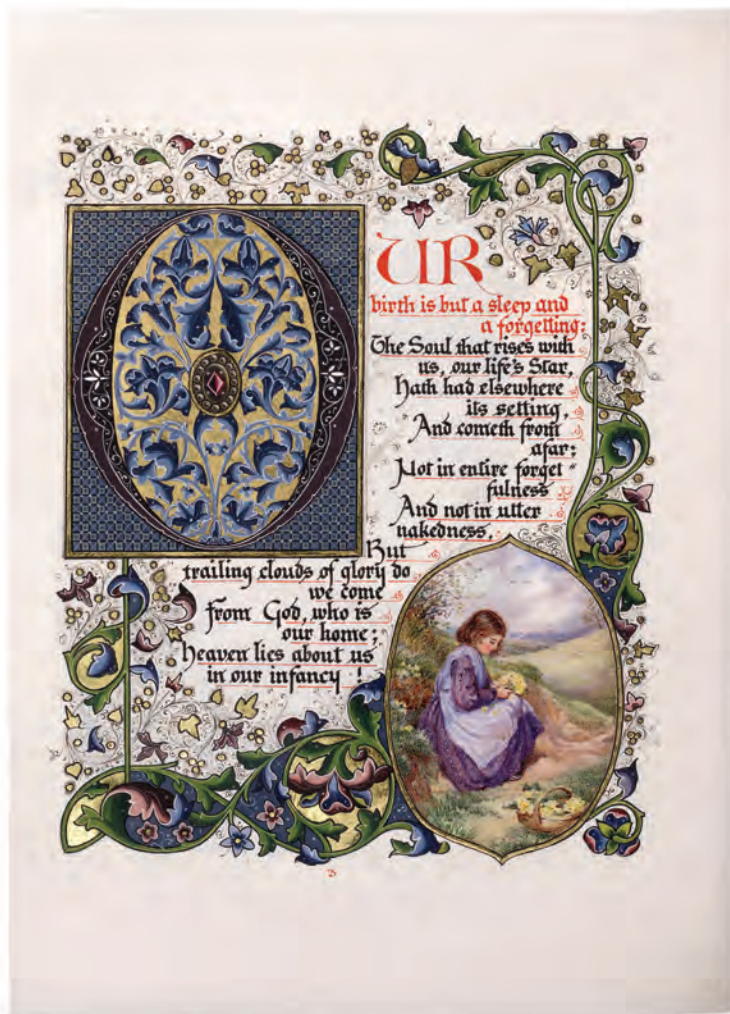 OUR
birth is but a sleep and
a forgetting:
The Soul that rises with
us, our life's Star,
Hath had elsewhere
its setting,
And cometh from
afar:
Not in entire forget"
fulness
And not in utter
nakedness,
But
trailing clouds of glory do
we come
From God, who is
our home;
Heaven lies about us
in our infancy !